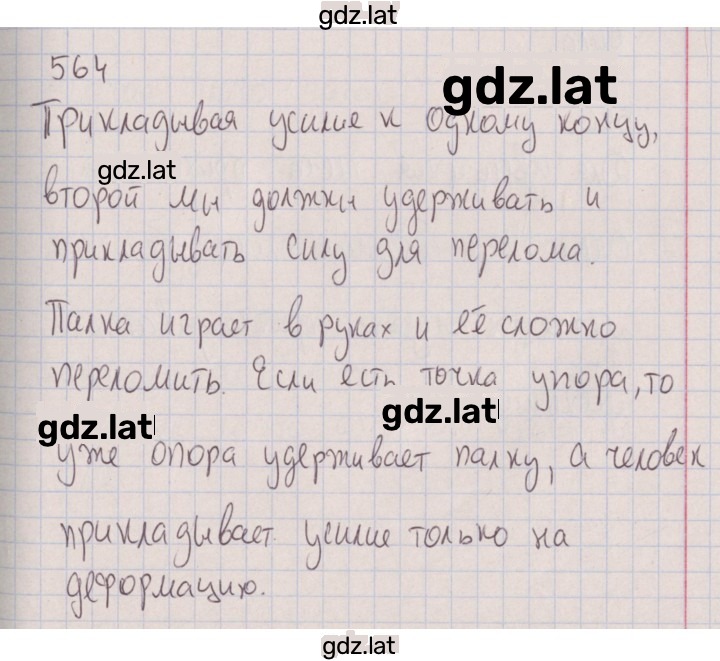 gdz.lat
564
gdz.lat
Прикладывая усилие к одному концу,
gdz.lat
второй мы должны удерживать и
прикладывать силу для перелома.
Палка играет в руках и её сложно
переломить. Если есть точка упора, то
gdz.lat
gdz.lat
уже опора удерживает палку, а человек
прикладывает усилие только на
деформацию.
gdz.lat